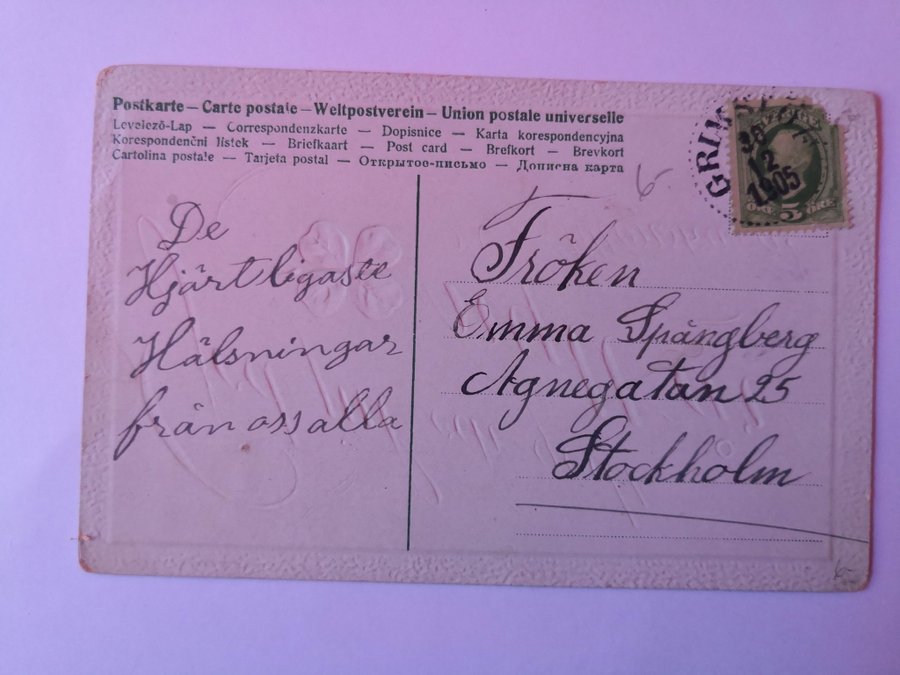 Postkarte – Carte postale – Weltpostverein – Union postale universelle
Levelező-Lap — Correspondenzkarte — Dopisnice — Karta korespondencyjna
Korespondenční lístek — Briefkaart — Post card — Brefkort — Brevkort
Cartolina postale — Tarjeta postal — Открытое-письмо — Дописна карта
1905
5
6-
De
Hjärtligaste
Hälsningar
från oss alla
Fröken
Emma Spångberg
Agnegatan 25
Stockholm
6-